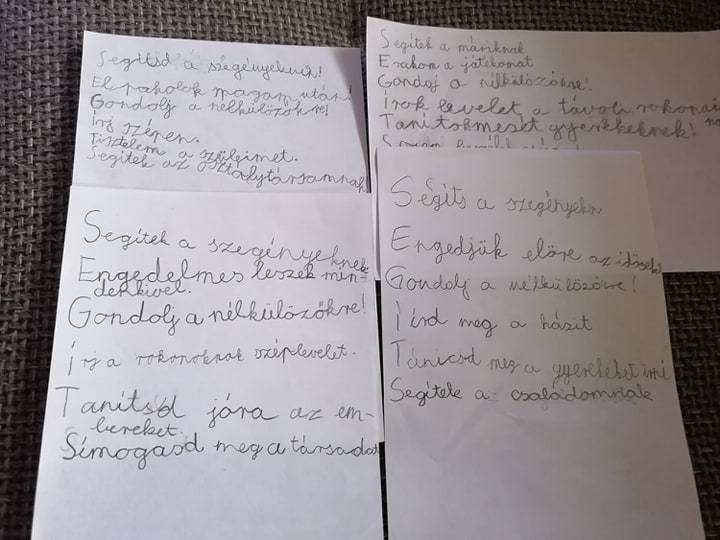 Segítsd a szegényeknek!
Elrakolok magam után!
Gondolj a nélkülözőkre!
Írj szépen.
Tisztelem a szüleimet.
Segítek az osztálytársamnak!
Segítek a másiknak
Erakom a játékomat
Gondoj a nélkülözőkre!
Írok levelet a távoli
Tanítokmesét gyerekeknek!
Segítek a szegényeknek
Engedelmes leszek min-
denkivel.
Gondolj a nélkülözőkre!
Írj a rokonoknak széplevelet.
Tanítsd jóra az em-
bereket.
Símogasd meg a társadat
Ségíts a szegényeken
Engedjük elöre az időseket
Gondolj a nélkülözőkre!
Iírd meg a házit
Tánicsd meg a gyerekeket írni
Segítek a családomnak